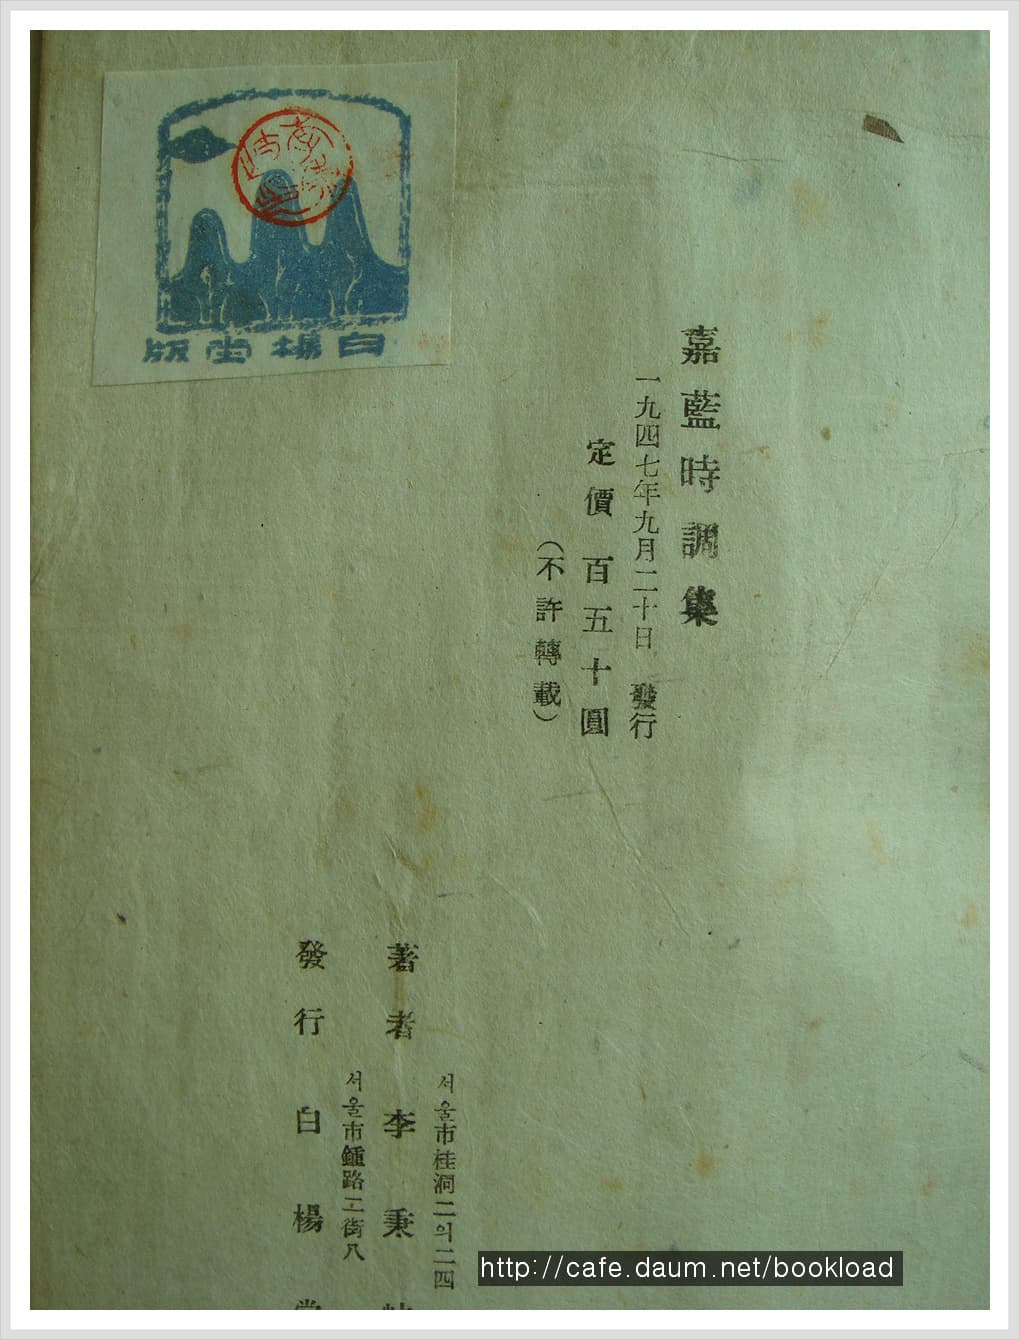 嘉藍時調集
一九四七年九月二十日 發行
定價 百五十圓
(不許轉載)
서울市桂洞二의二四
著者 李秉
서울市鍾路二街八
發行 白楊堂
白楊堂版
http://cafe.daum.net/bookload